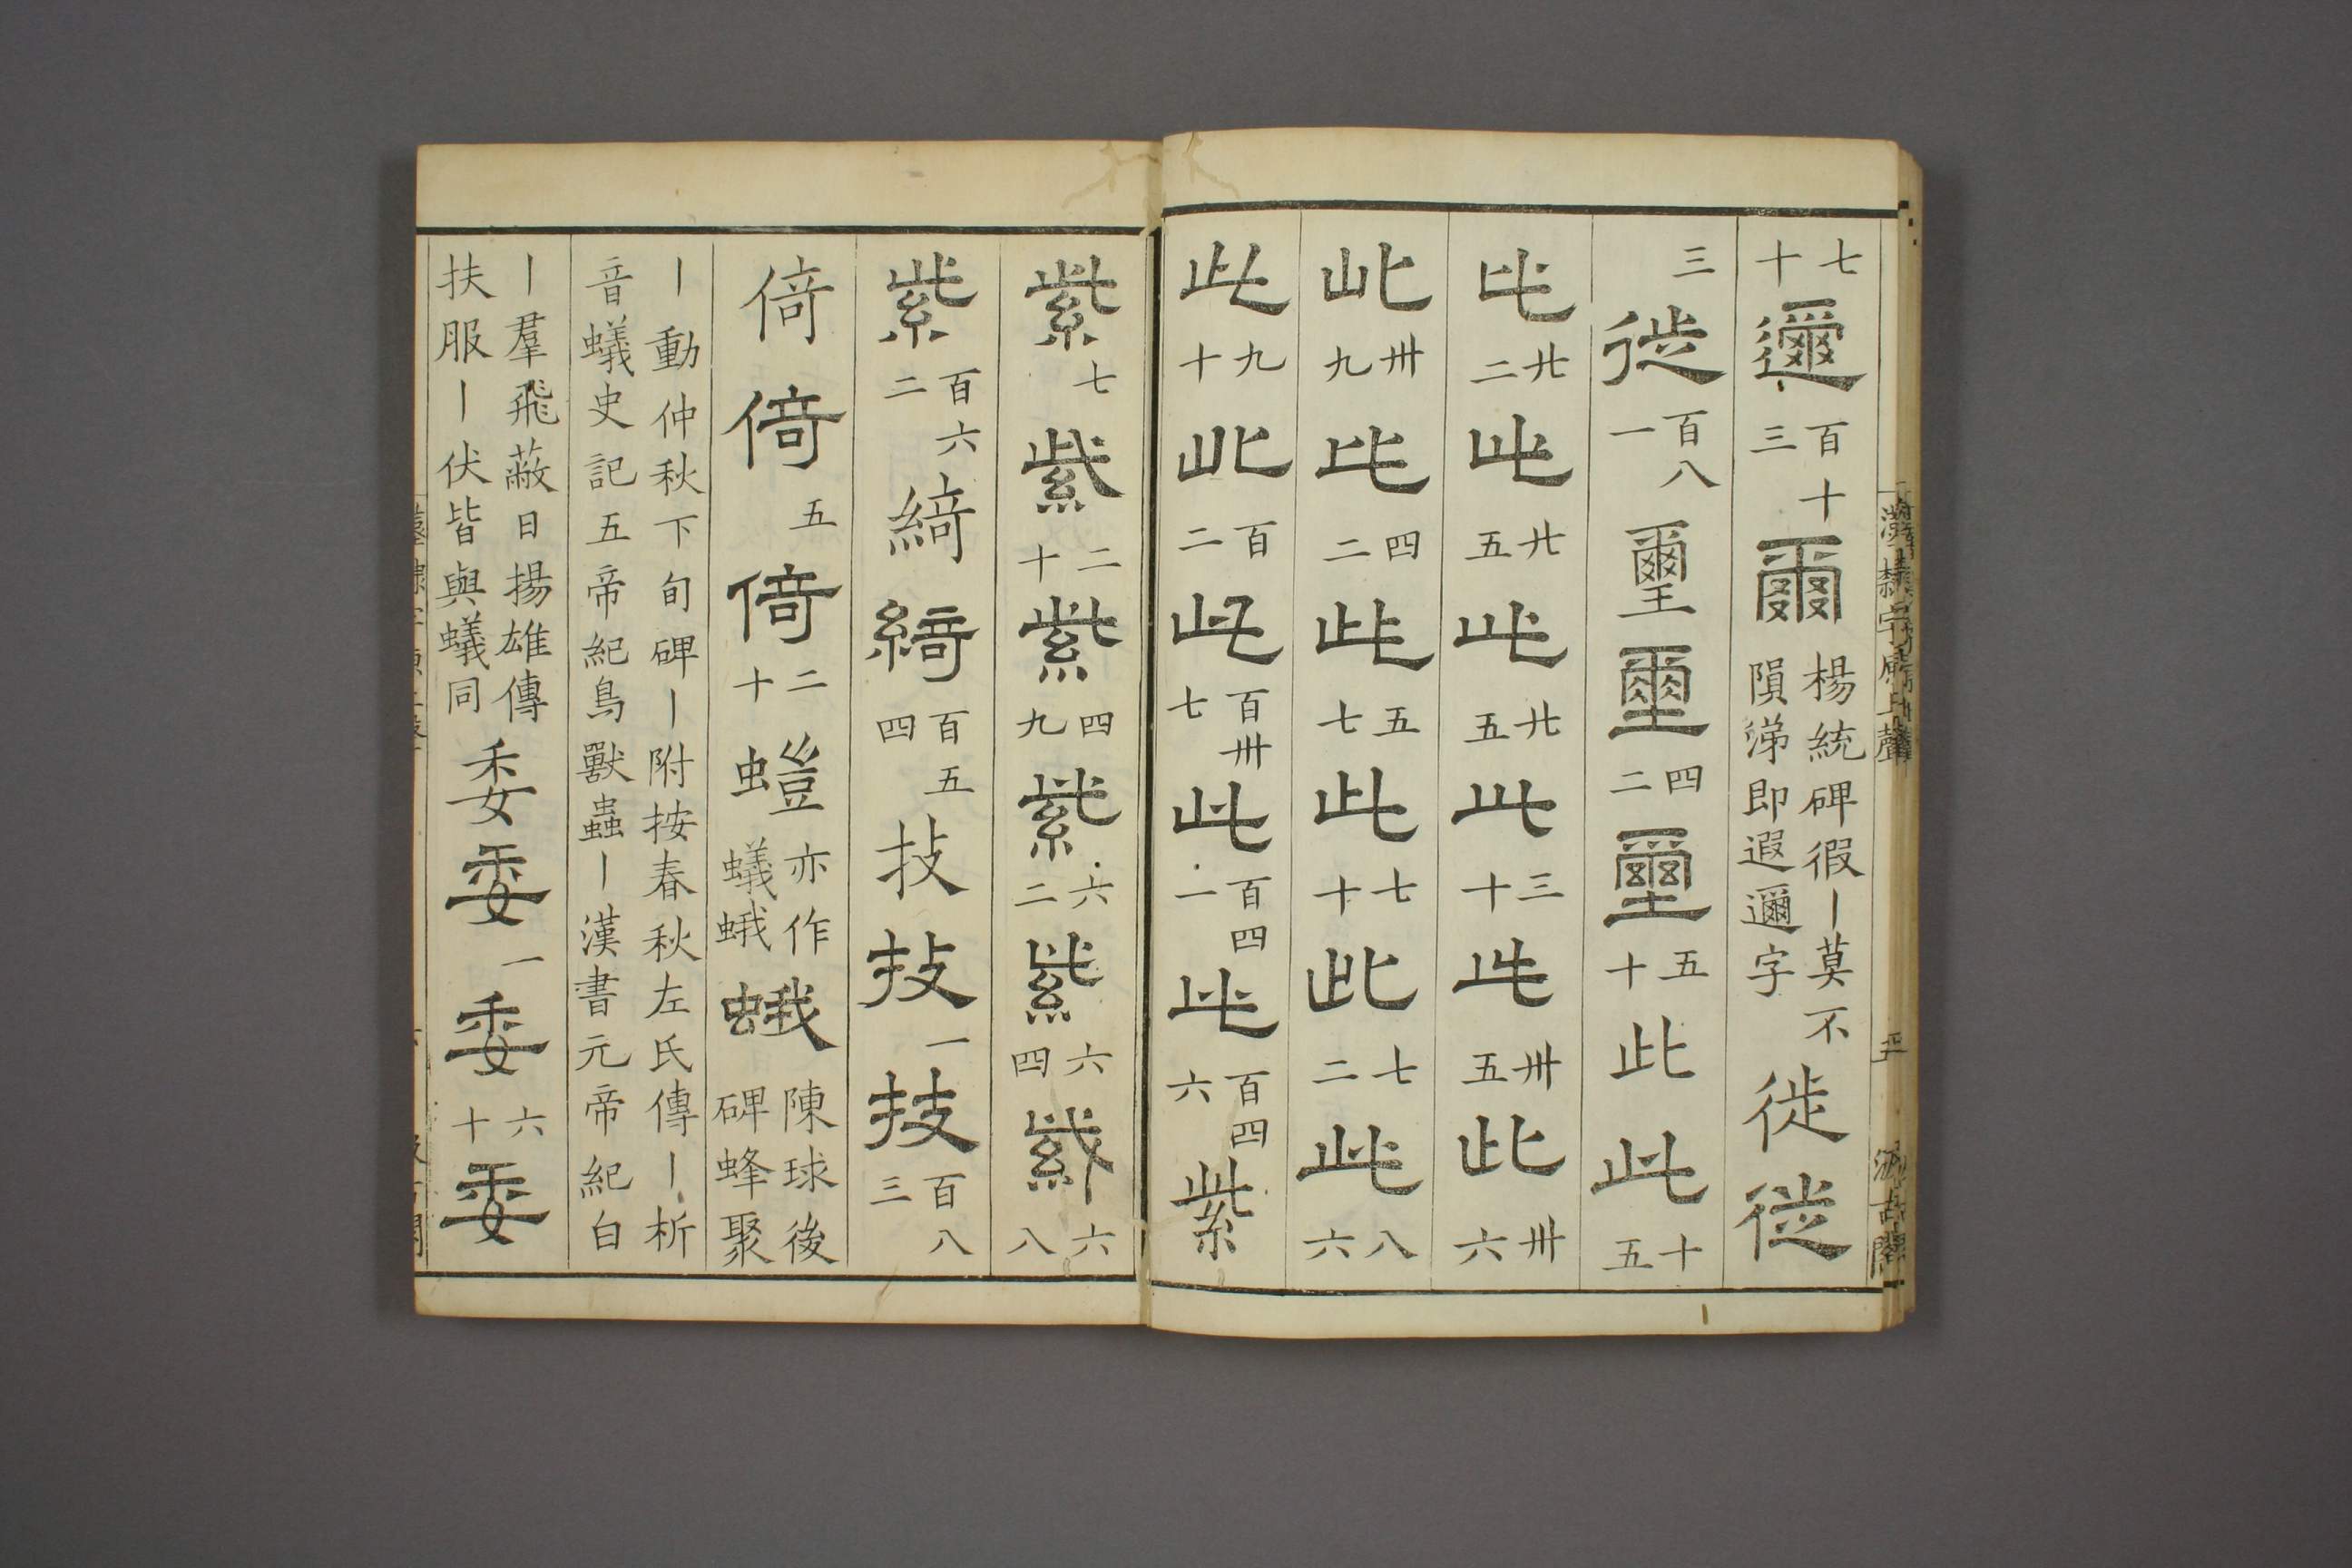 七十邇百十三爾楊統碑徦丨莫不隕涕即遐邇字徙徙
三徙百八一璽璽四二璽五十此此十五
此廿二此廿五此廿五此三十此卅五此卅六
此卅九此四二此五七此七十此七二此八六
此九十此百二此百卅七此百四一此百四六紫
紫七紫二十紫四九紫六二紫六四紫六八
紫百六二綺綺百五四技技一技百八三
倚倚五倚二十螘亦作蟻蛾蛾陳球後碑蜂聚
丨動仲秋下旬碑丨附按春秋左氏傳丨析
音蟻史記五帝紀鳥獸蟲丨漢書元帝紀白
丨羣飛蔽日揚雄傳扶服丨伏皆與蟻同委委一委六十委
漢隸字原上聲
五
汲古閣